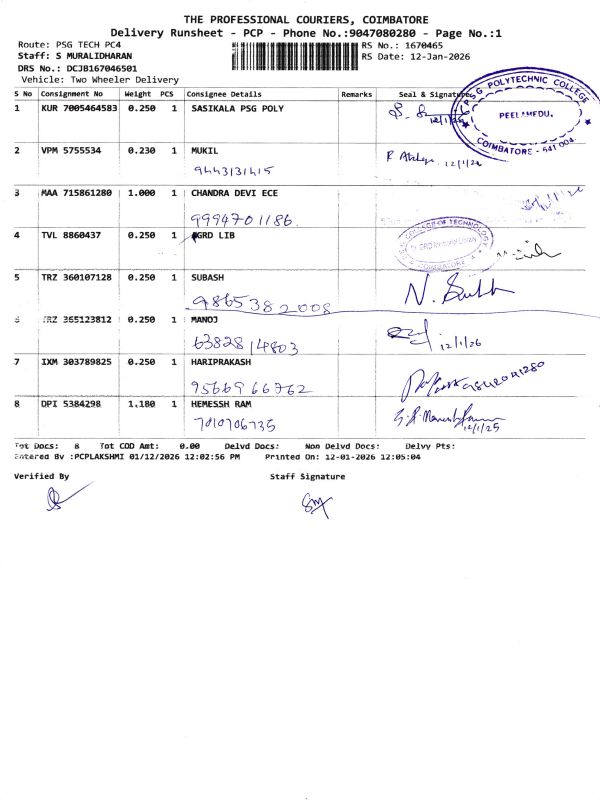 THE PROFESSIONAL COURIERS, COIMBATORE
Delivery Runsheet - PCP - Phone No.:9047080280 - Page No.:1
Route: PSG TECH PC4
RS No.: 1670465
Staff: S MURALIDHARAN
RS Date: 12-Jan-2026
DRS No.: DCJB167046501
Vehicle: Two Wheeler Delivery
S No Consignment No Weight PCS Consignee Details Remarks Seal & Signature
1 KUR 7005464583 0.250 1 SASIKALA PSG POLY
12/1/26
PSG POLYTECHNIC COLLEGE
PEELAMEDU,
COIMBATORE - 641 004.
2 VPM 5755534 0.230 1 MUKIL
9443131415
12/1/26
3 MAA 715861280 1.000 1 CHANDRA DEVI ECE
9994701186.
4 TVL 8860437 0.250 1 GRD LIB
COLLEGE OF TECHNOLOGY
COIMBATORE
5 TRZ 360107128 0.250 1 SUBASH
9865382008
6 TRZ 365123812 0.250 1 MANOJ
6382814803
12/1/26
7 IXM 303789825 0.250 1 HARIPRAKASH
9566966762
8 DPI 5384298 1.180 1 HEMESSH RAM
7010706735
12/1/25
Tot Docs: 8 Tot COD Amt: 0.00 Delvd Docs: Non Delvd Docs: Delvy Pts:
Entered By :PCPLAKSHMI 01/12/2026 12:02:56 PM Printed On: 12-01-2026 12:05:04
Verified By Staff Signature